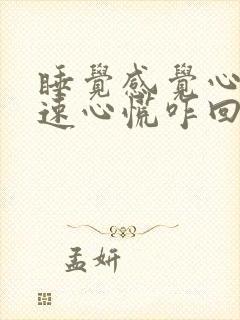 睡覺感覺心
速心慌咋回
孟妍